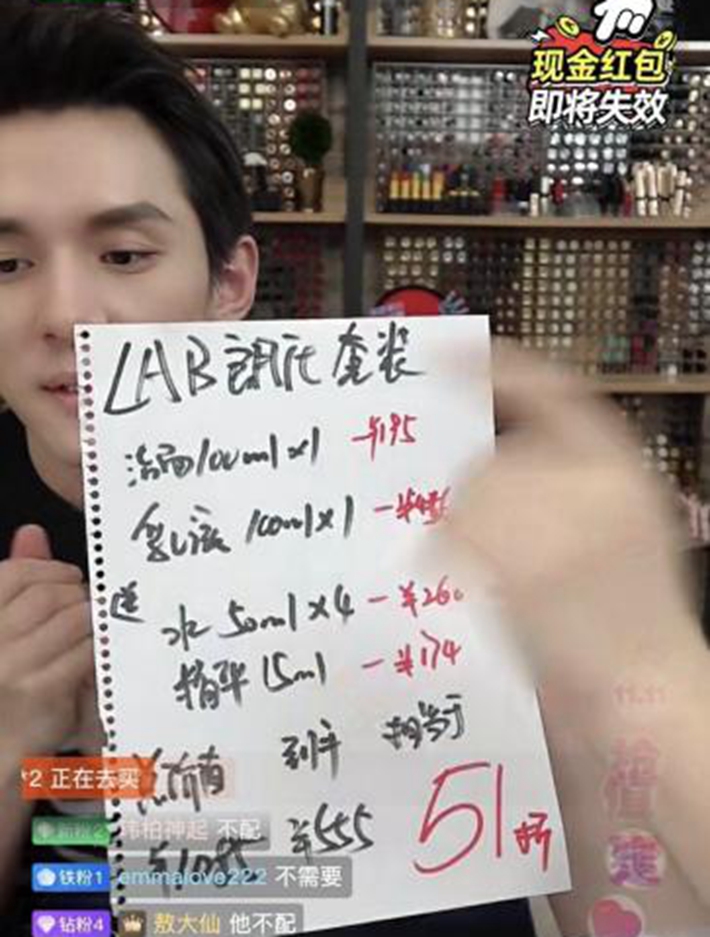 现金红包
即将失效
LAB 朗氏 套装
洁面100ml×1 ¥195
乳液 100ml×1 -¥456
送
水 50ml×4 -¥260
精华 15ml -¥174
总价值 到手 相当于
¥1085 ¥555 51折
11.11
*2 正在去买
新粉2 韩柏神起 不配
铁粉1 emmalove222 不需要
钻粉4 敖大仙 他不配